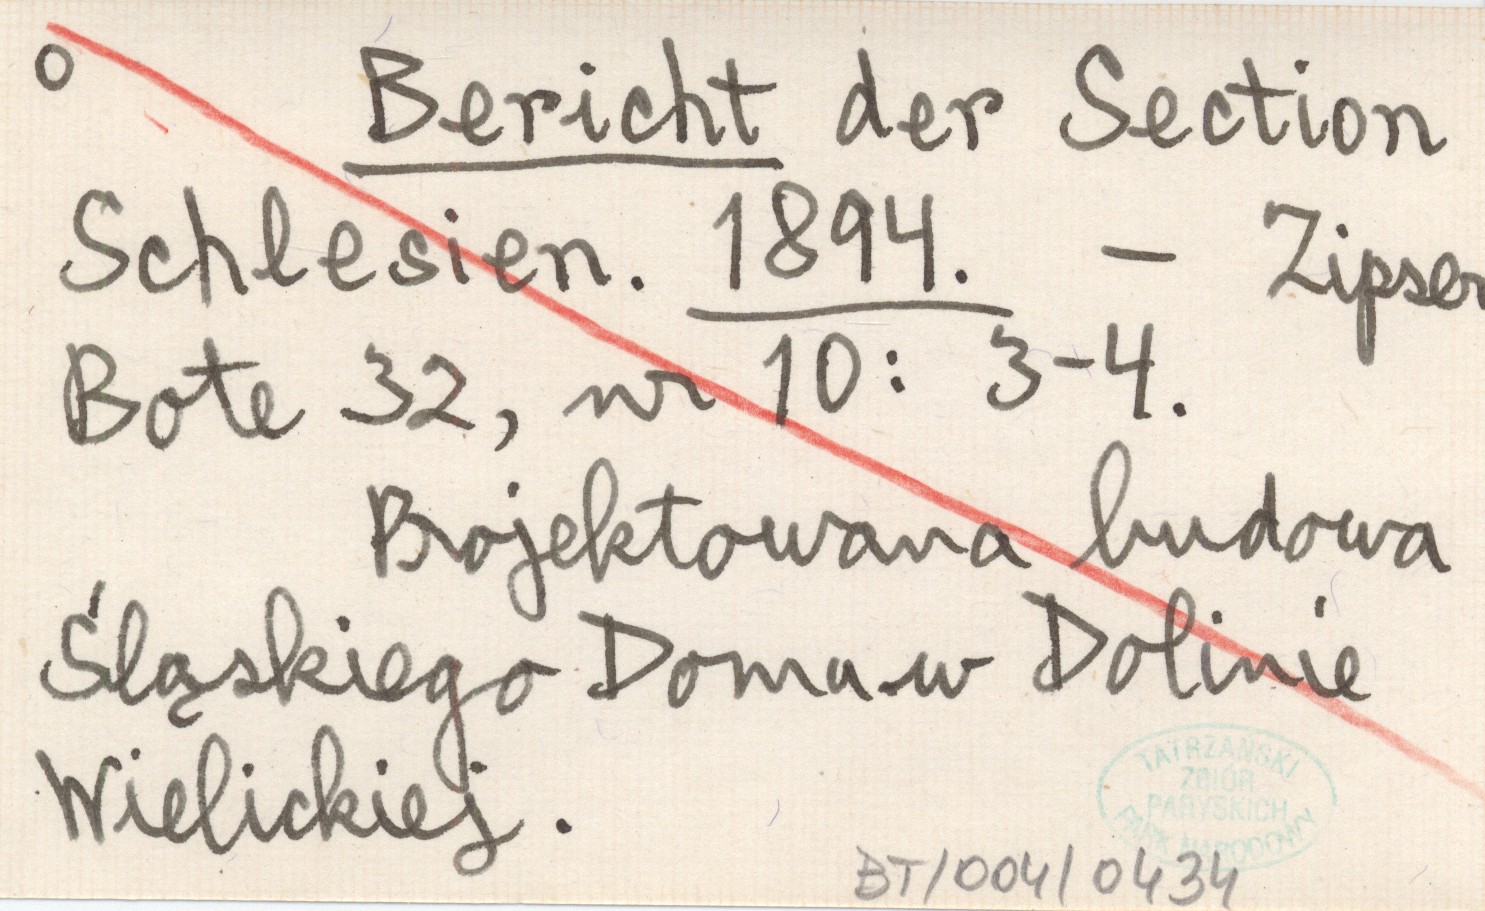 o Bericht der Section
Schlesien. 1894. – Zipser
Bote 32, nr 10: 3-4.
Projektowana budowa
Śląskiego Domu w Dolinie
Wielickiej.
TATRZAŃSKI
ZBIÓR
PARYSKICH
PARK NARODOWY
BT/004/0434